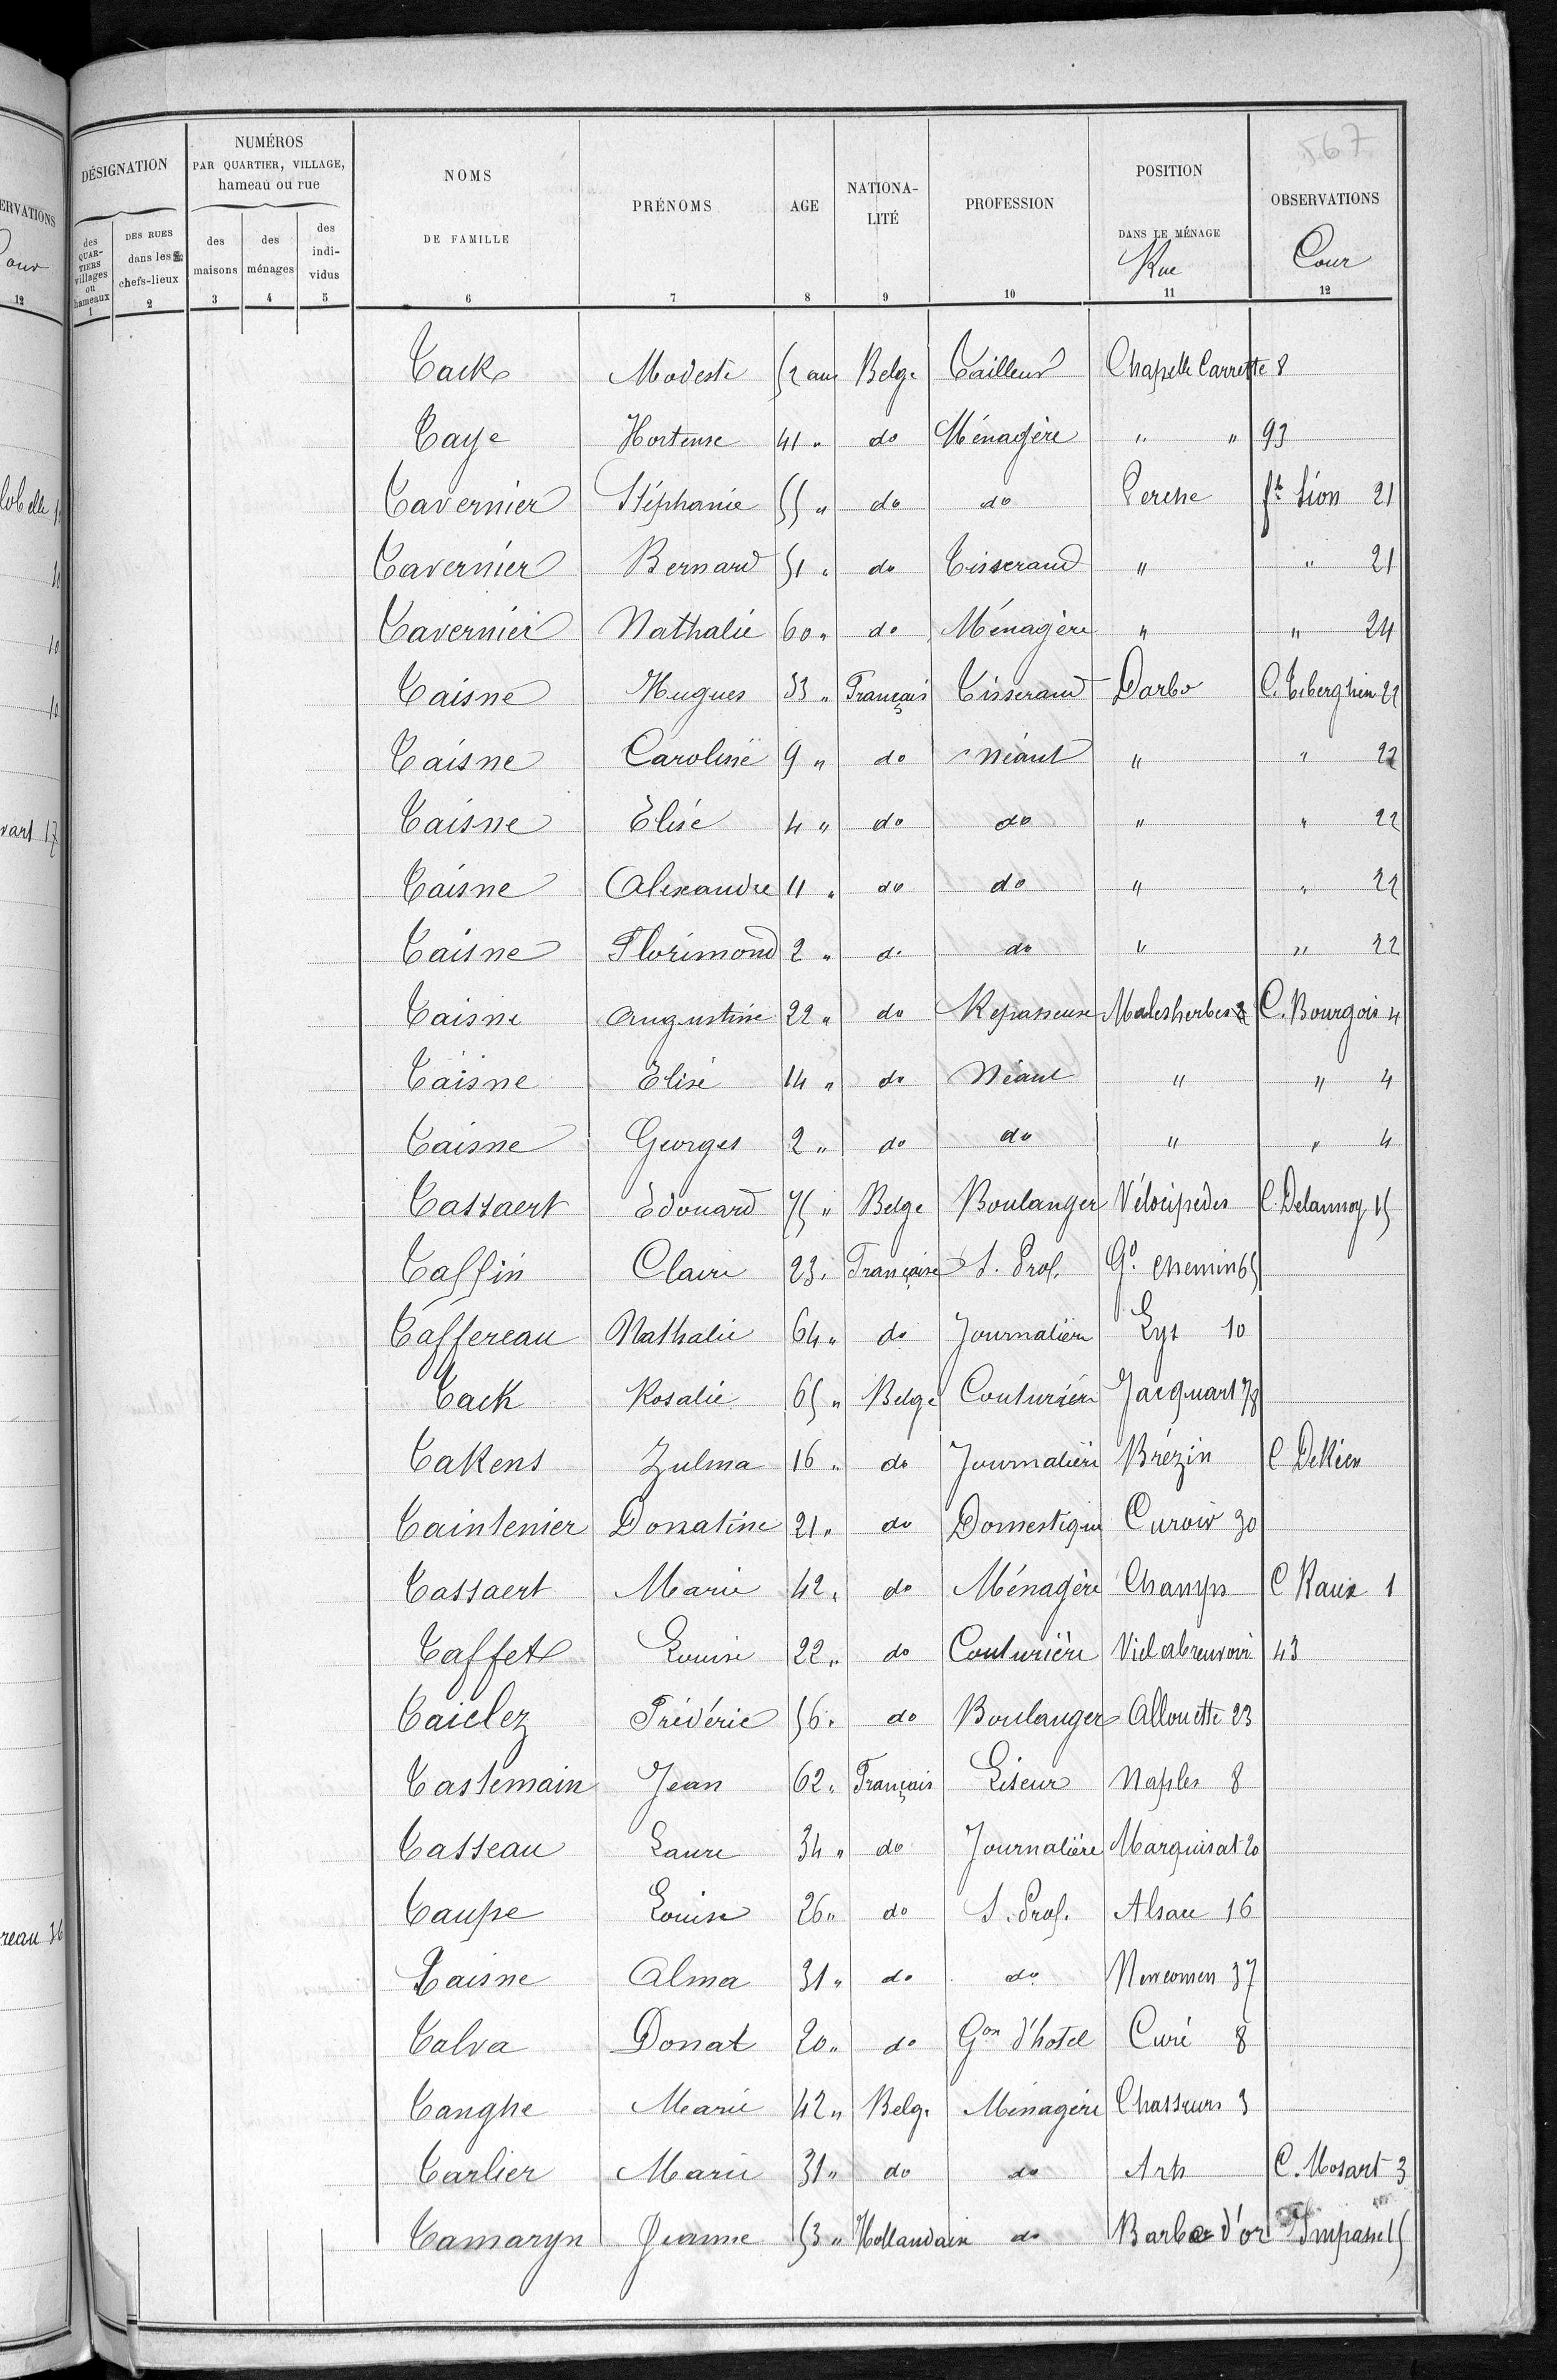 567
DÉSIGNATION
NUMÉROS PAR QUARTIER, VILLAGE, hameau ou rue
NOMS DE FAMILLE
PRÉNOMS
AGE
NATIONA-LITÉ
PROFESSION
POSITION DANS LE MÉNAGE
OBSERVATIONS
des QUAR-TIERS villages ou hameaux
DES RUES dans les chefs-lieux
des maisons
des ménages
des indi-vidus
Rue
Cour
1 2 3 4 5 6 7 8 9 10 11 12
Tack Modeste 52 ans Belge Tailleur Chapelle Carrette 8
Taye Hortense 41 " do Ménagère " " 93
Tavernier Stéphanie 55 " do do Perche ft Sion 21
Tavernier Bernard 51 " do Tisserand " " 21
Tavernier Nathalie 60 " do Ménagère " " 24
Taisne Hugues 33 " Français Tisserand Darbo C. Tiberghien 22
Taisne Caroline 9 " do Néant " " 22
Taisne Elise 4 " do do " " 22
Taisne Alexandre 11 " do do " " 22
Taisne Florimond 2 " do do " " 22
Taisne Augustine 22 " do Repasseuse Malesherbes C. Bourgois 4
Taisne Elise 14 " do Néant " " 4
Taisne Georges 2 " do do " " 4
Tassaert Edouard 75 " Belge Boulanger Vélocipèdes C. Delannoy 15
Taffin Claire 23 " Française S. Prof. Gd chemin 65
Taffereau Nathalie 64 " do Journalière Lys 10
Tack Rosalie 65 " Belge Couturière Jacquart 78
Takens Zulma 16 " do Journalière Brézin C Dekien
Taintenier Donatine 21 " do Domestique Curoir 30
Tassaert Marie 42 " do Ménagère Champs C Raux 1
Taffet Louise 22 " do Couturière Viel abreuvoir 43
Taielez Frédéric 56 " do Boulanger Allouette 23
Tastemain Jean 62 " Français Liseur Naples 8
Tasseau Laure 34 " do Journalière Marquisat 20
Taupe Louise 26 " do S. Prof. Alsace 16
Taisne Alma 31 " do do Newcomen 37
Talva Donat 20 " do Gon d'hotel Curé 8
Tanghe Marie 42 " Belge Ménagère Chasseurs 3
Tarlier Marie 31 " do do Arts C. Mosart 3
Tamaryn Jeanne 53 " Hollandaise do Barbe d'or Impasse 15